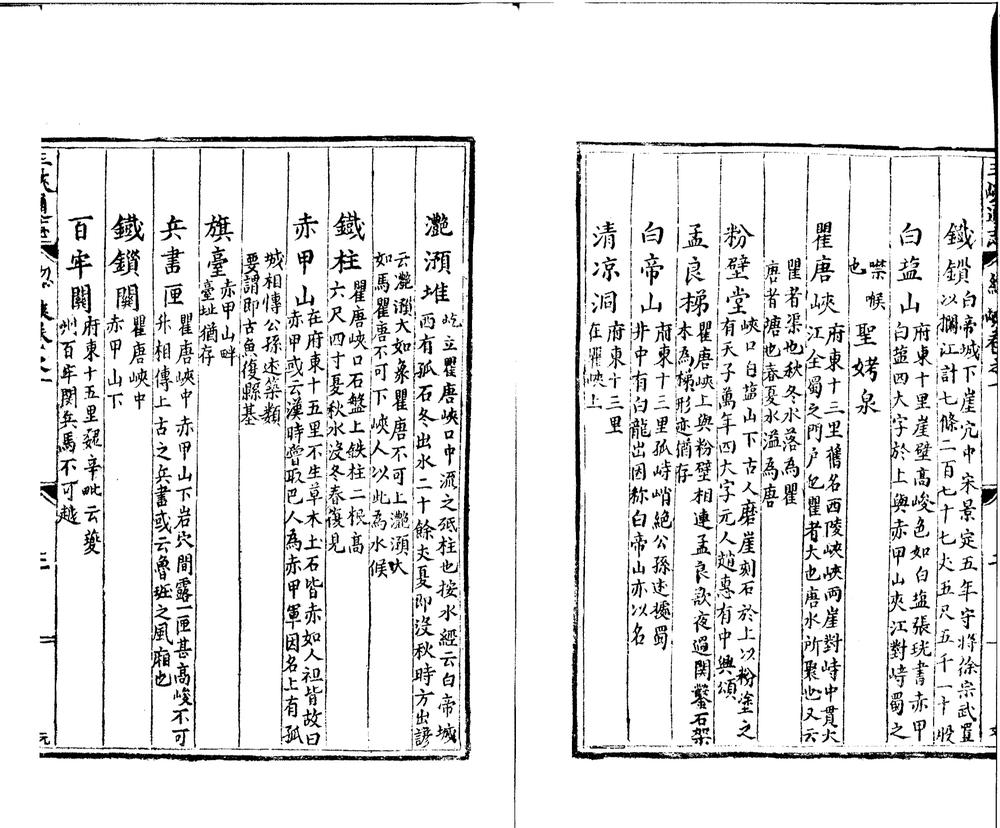 三峽通志
鐵鎖白帝城下崖穴中宋景定五年守將徐宗武置
以攔江計七條二百七十七丈五尺五千一十股
白盐山府東十里崖壁高峻色如白盐張珖書赤甲
白盐四大字於上與赤甲山夾江對峙蜀之
喉
也
聖姥泉
瞿唐峽府東十三里舊名西陵峽峽兩崖對峙中貫大
江全蜀之門户也瞿者大也唐水所聚也又云
瞿者渠也秋冬水落為瞿
唐者塘也春夏水溢為唐
粉壁堂峽口白盐山下古人磨崖刻石於上以粉塗之
有天子萬年四大字元人趙惠有中興頌
孟良梯瞿唐峽上與粉壁相連孟良歌夜過関鑿石架
木為梯形亦猶存
白帝山府東十三里孤峙峭絕公孫述據蜀
井中有白龍出因称白帝山亦以名
清凉洞府東十三里
在瞿峽上
灧澦堆屹立瞿唐峽口中流之砥柱也按水經云白帝城
西有孤石冬出水二十餘丈夏即沒秋時方出諺
云灧澦大如象瞿唐不可上灧澦大
如馬瞿唐不可下峽人以此為水候
鐵柱瞿唐峽口石盤上鉄柱二根高
六尺四寸夏秋水沒冬春復見
赤甲山在府東十五里不生草木土石皆赤如人袒背故曰
赤甲或云漢時嘗取巴人為赤甲軍因名上有孤
城相傳公孫述築類
要謂即古魚復縣基
旗臺赤甲山畔
臺址猶存
兵書匣瞿唐峽中赤甲山下岩穴間露一匣甚高峻不可
升相傳上古之兵書或云魯班之風廂也
鐵鎖關瞿唐峽中
赤甲山下
百牢關府東十五里魏辛毗云夔
州百牢関兵馬不可越
三峽通志
三